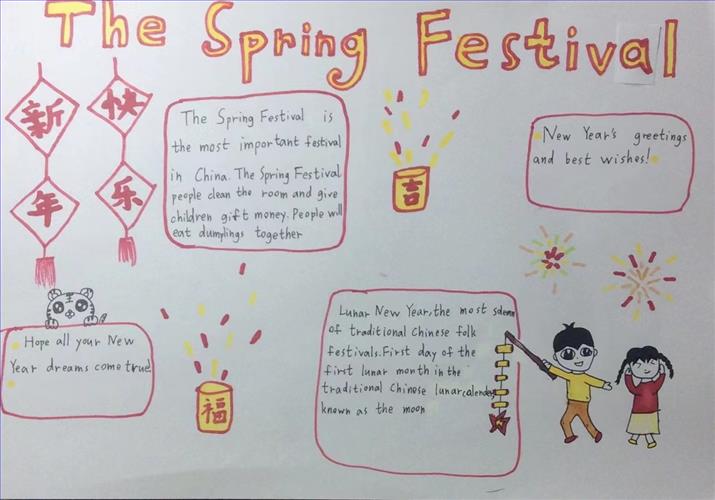 The Spring Festival
新 快
年 乐
The Spring Festival is
the most important festival
in China. The Spring Festival
people clean the room and give
children gift money. People will
eat dumplings together
吉
New Year's greetings
and best wishes!
王
Hope all your New
Year dreams come true
福
Lunar New Year, the most
of traditional Chinese folk
festivals. First day of the
first lunar month in the
traditional Chinese lunar calendar
known as the moon